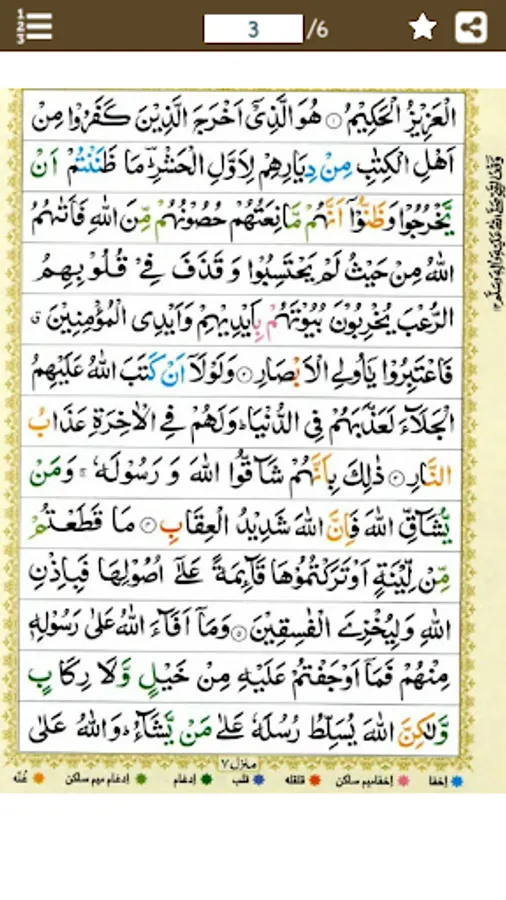 3 /6
الْعَزِيْزُ الْحَكِيْمُ ۝۱ هُوَ الَّذِيْۤ اَخْرَجَ الَّذِيْنَ كَفَرُوْا مِنْ
اَهْلِ الْكِتٰبِ مِنْ دِيَارِهِمْ لِاَوَّلِ الْحَشْرِ ؔ مَا ظَنَنْتُمْ اَنْ
يَّخْرُجُوْا وَظَنُّوْۤا اَنَّهُمْ مَّانِعَتُهُمْ حُصُوْنُهُمْ مِّنَ اللّٰهِ فَاَتٰىهُمُ
اللّٰهُ مِنْ حَيْثُ لَمْ يَحْتَسِبُوْا وَقَذَفَ فِيْ قُلُوْبِهِمُ
الرُّعْبَ يُخْرِبُوْنَ بُيُوْتَهُمْ بِاَيْدِيْهِمْ وَاَيْدِى الْمُؤْمِنِيْنَ ق
فَاعْتَبِرُوْا يٰۤاُولِى الْاَبْصَارِ ۝۲ وَلَوْلَاۤ اَنْ كَتَبَ اللّٰهُ عَلَيْهِمُ
الْجَلَآءَ لَعَذَّبَهُمْ فِى الدُّنْيَا ؕ وَلَهُمْ فِى الْاٰخِرَةِ عَذَابُ
النَّارِ ۝۳ ذٰلِكَ بِاَنَّهُمْ شَآقُّوا اللّٰهَ وَرَسُوْلَهٗ ۚ وَمَنْ
يُّشَآقِّ اللّٰهَ فَاِنَّ اللّٰهَ شَدِيْدُ الْعِقَابِ ۝۴ مَا قَطَعْتُمْ
مِّنْ لِّيْنَةٍ اَوْ تَرَكْتُمُوْهَا قَآئِمَةً عَلٰۤى اُصُوْلِهَا فَبِاِذْنِ
اللّٰهِ وَلِيُخْزِيَ الْفٰسِقِيْنَ ۝۵ وَمَاۤ اَفَآءَ اللّٰهُ عَلٰى رَسُوْلِهٖ
مِنْهُمْ فَمَاۤ اَوْجَفْتُمْ عَلَيْهِ مِنْ خَيْلٍ وَّلَا رِكَابٍ
وَّلٰكِنَّ اللّٰهَ يُسَلِّطُ رُسُلَهٗ عَلٰى مَنْ يَّشَآءُ ؕ وَاللّٰهُ عَلٰى
منزل ۷
اِخفا اِخفامیم ساکن قلقله قلب اِدغام اِدغام میم ساکن غُنّه